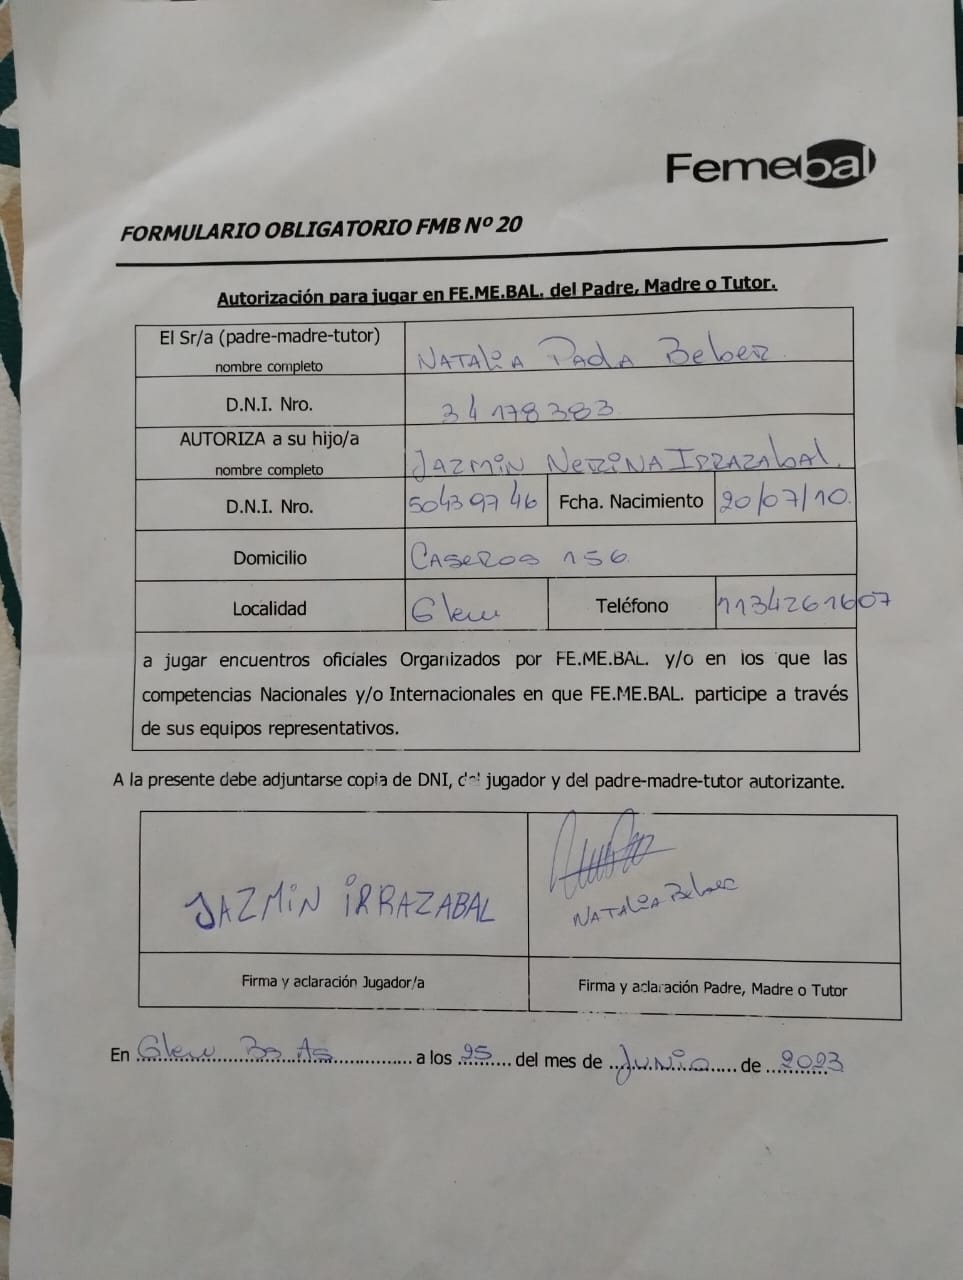 Femebal
FORMULARIO OBLIGATORIO FMB Nº 20
Autorización para jugar en FE.ME.BAL. del Padre, Madre o Tutor.
El Sr/a (padre-madre-tutor)
nombre completo
NATALiA PAOlA BeBeR
D.N.I. Nro.
34178383
AUTORIZA a su hijo/a
nombre completo
JAZMiN NeRiNA IRRAZAbAL.
D.N.I. Nro.
50439746
Fcha. Nacimiento
20/07/10.
Domicilio
CASeROS 156.
Localidad
Glew
Teléfono
1134261607
a jugar encuentros oficiales Organizados por FE.ME.BAL. y/o en los que las
competencias Nacionales y/o Internacionales en que FE.ME.BAL. participe a través
de sus equipos representativos.
A la presente debe adjuntarse copia de DNI, del jugador y del padre-madre-tutor autorizante.
JAZMiN iRRAZABAL
NATALiA Beber
Firma y aclaración Jugador/a
Firma y aclaración Padre, Madre o Tutor
En Glew Bs As a los 25 del mes de JUNiO de 2023